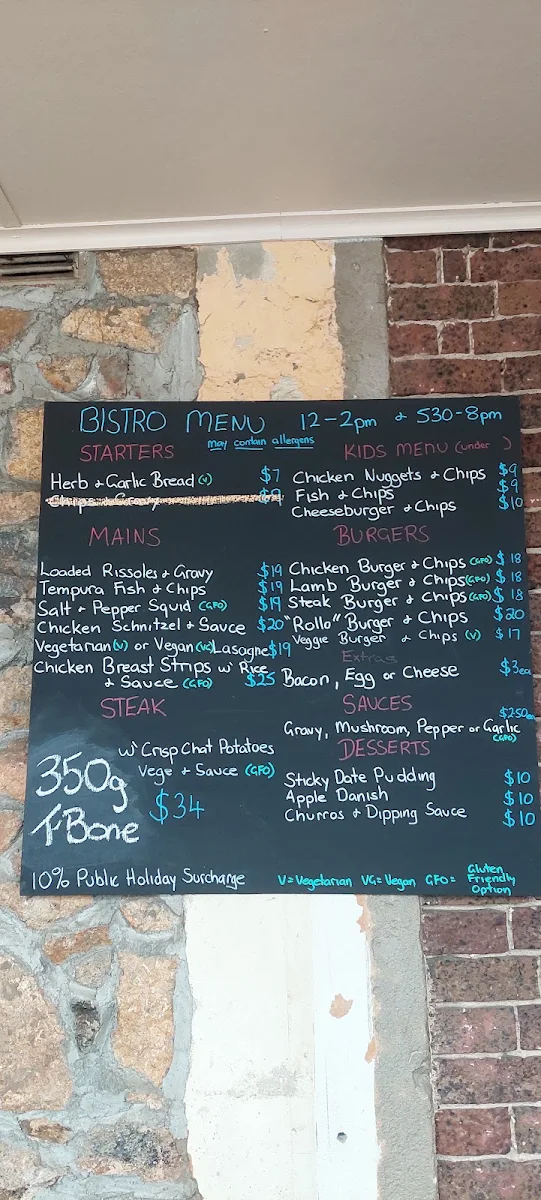 BISTRO MENU 12-2pm & 530-8pm
may contain allergens
STARTERS
Herb & Garlic Bread (V) $7
MAINS
Loaded Rissoles & Gravy $19
Tempura Fish & Chips $19
Salt & Pepper Squid (GFO) $19
Chicken Schnitzel & Sauce $20
Vegetarian (V) or Vegan (VG) Lasagne $19
Chicken Breast Strips w' Rice
& Sauce (GFO) $25
STEAK
350g
T-Bone
w' Crisp Chat Potatoes
Vege & Sauce (GFO)
$34
KIDS MENU (under )
Chicken Nuggets & Chips $9
Fish & Chips $9
Cheeseburger & Chips $10
BURGERS
Chicken Burger & Chips (GFO) $18
Lamb Burger & Chips (GFO) $18
Steak Burger & Chips (GFO) $18
"Rollo" Burger & Chips $20
Veggie Burger & Chips (V) $17
Extras
Bacon, Egg or Cheese $3ea
SAUCES
$2.50ea
Gravy, Mushroom, Pepper or Garlic
(GFO)
DESSERTS
Sticky Date Pudding $10
Apple Danish $10
Churros & Dipping Sauce $10
10% Public Holiday Surcharge
V=Vegetarian VG=Vegan GFO= Gluten
Friendly
Option